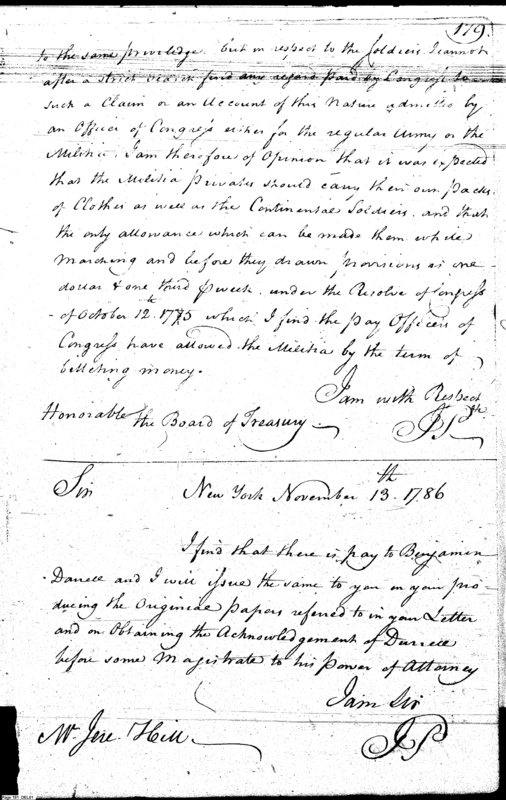 179.
to the same priviledge. but in respect to the Soldiers, I cannot
after a strict search find any regard paid by Congress to
such a Claim or an Account of this Nature admitted by
an Officer of Congress either for the regular Army or the
Militia. I am therefore of Opinion that it was expected
that the Militia Privates should carry their own Packs
of Clothes as well as the Continental Soldiers. and that
the only allowance which can be made them while
marching and before they drawn provisions is one
dollar & one third pr week. under the Resolve of Congress
of October 12th 1775 which I find the pay Officers of
Congress have allowed the Militia by the term of
billeting money.
I am with Respect
Honorable the Board of Treasury.
JP
Sir New York November 13th 1786
I find that there is pay to Benjamin
Durell and I will issue the same to you on your pro
ducing the Original Papers referred to in your Letter
and on Obtaining the Acknowledgement of Durrell
before some Magistrate to his Power of Attorney
I am Sir
Mr Jere. Hill.
JP